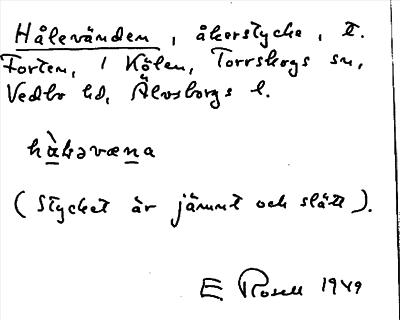 Hålevänden, åkerstycke, tt.
Torten, 1 Kölen, Torrskogs sn,
Vedbo hd, Älvsborgs l.
(Stycket är jämnt och slätt).
E Rosell 1949